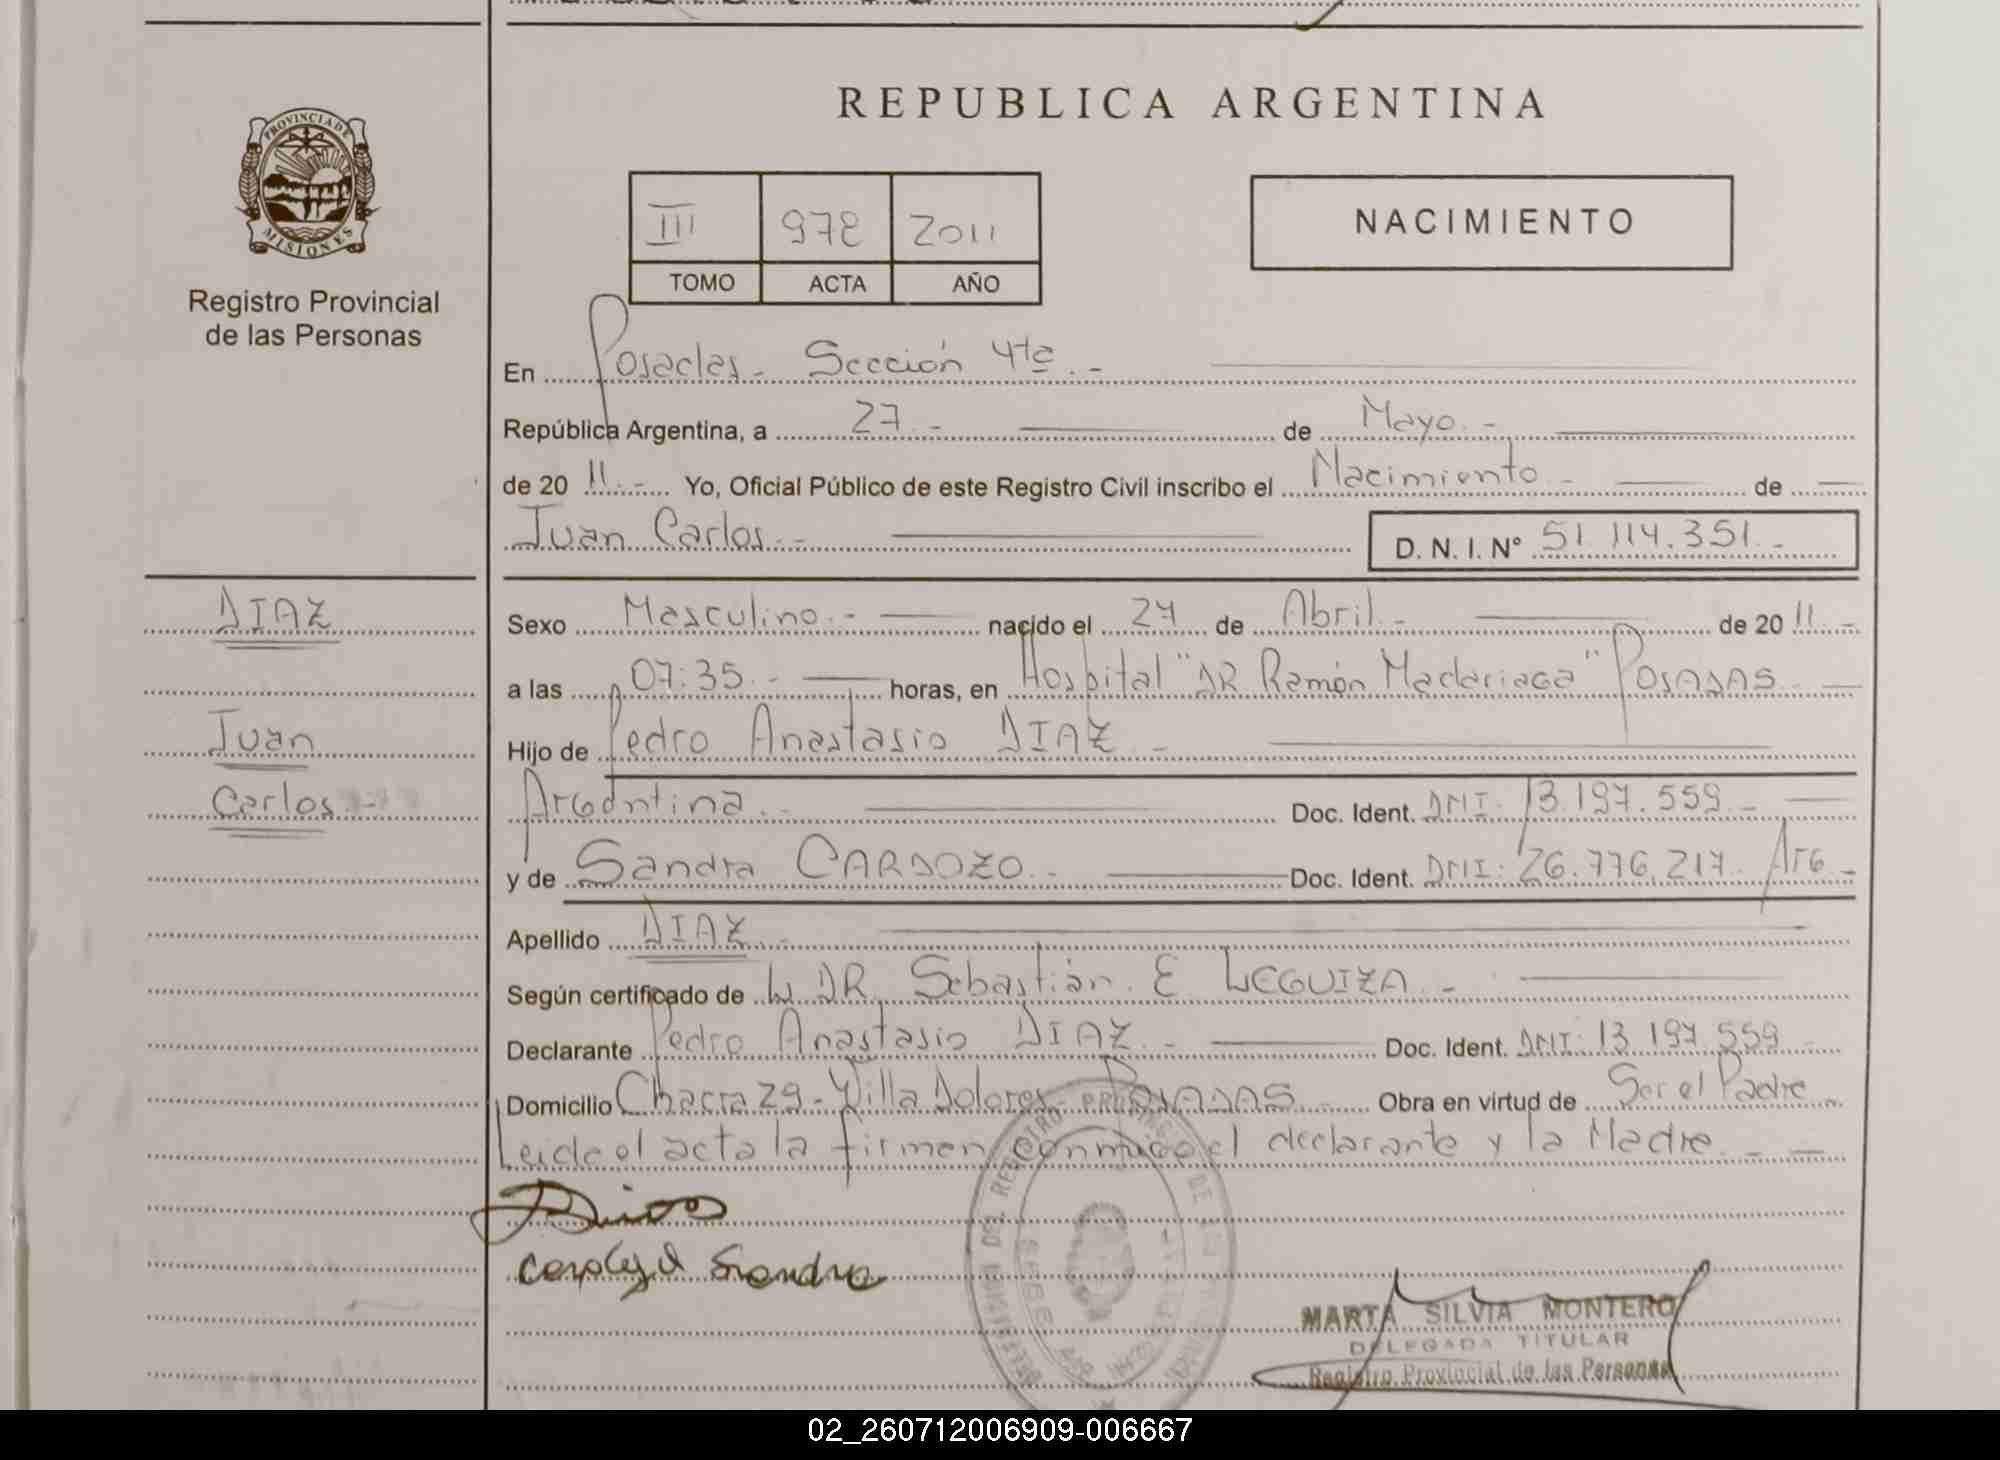 REPUBLICA ARGENTINA
PROVINCIA DE
MISIONES
Registro Provincial
de las Personas
III 978 2011
TOMO ACTA AÑO
NACIMIENTO
En Posadas - Sección 4ta. -
República Argentina, a 27 - de Mayo. -
de 20 11. - Yo, Oficial Público de este Registro Civil inscribo el Nacimiento - de
Juan Carlos. - D. N. I. Nº 51.114.351. -
DIAZ
Juan
Carlos. -
Sexo Masculino. - nacido el 24 de Abril. - de 20 11. -
a las 07:35. - horas, en Hospital "DR Ramón Madariaga" POSADAS. -
Hijo de Pedro Anastasio DIAZ. -
Argentina. - Doc. Ident. DNI: 13.197.559. -
y de Sandra CARDOZO. - Doc. Ident. DNI: 26.776.217. Arg. -
Apellido DIAZ. -
Según certificado de DR Sebastián E. LEGUIZA. -
Declarante Pedro Anastasio DIAZ. - Doc. Ident. DNI: 13.197.559
Domicilio Chacra 29 - Villa Dolores - POSADAS. - Obra en virtud de Ser el Padre
Leida el acta la firman conmigo el declarante y la Madre. -
Sandra
MARTA SILVIA MONTERO
DELEGADA TITULAR
Registro Provincial de las Personas
02_260712006909-006667